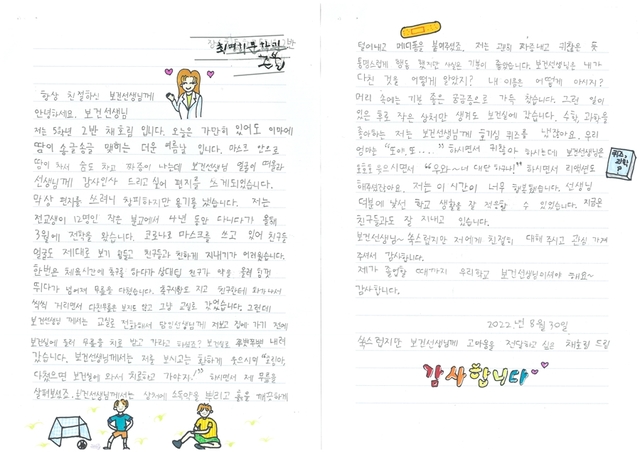 항상 친절하신 보건선생님께
안녕하세요. 보건선생님
저는 5학년 2반 채호림 입니다. 오늘은 가만히 있어도 이마에
땀이 송글송글 맺히는 더운 여름날 입니다. 마스크 안으로
땀이 차서 숨도 차고 짜증이 나는데 보건선생님 얼굴이 떠올라
선생님께 감사인사 드리고 싶어 편지를 쓰게되었습니다.
막상 편지를 쓰려니 창피하지만 용기를 냈습니다. 저는
전교생이 12명인 작은 분교에서 4년 동안 다니다가 올해
3월에 전학을 왔습니다. 코로나로 마스크를 쓰고 있어 친구들
얼굴도 제대로 보기 힘들고 친구들과 친하게 지내기가 어려웠습니다.
한번은 체육시간에 축구를 하다가 상대팀 친구가
뛰다가 넘어져 무릎을 다쳤습니다. 축구시합도 지고
씩씩 거리면서 다친무릎은 보지도 않고 그냥 교실로 갔었습니다. 그런데
보건선생님 께서는 교실로 전화해서 담임선생님께 저보고 집에 가기 전에
보건실에 들러 무릎을 치료 받고 가라고 하셨죠? 보건실로 내려
갔습니다. 보건선생님께서는 저를 보시고는 환하게 웃으시며 "호림아,
다쳤으면 보건실에 와서 치료하고 가야지!" 하시면서 제 무릎을
살펴보셨죠. 보건선생님께서는 상처에 소독약을 뿌리고 흙을 깨끗하게
털어내고 메디폼을 붙여주셨죠. 저는 괜히 짜증내고 귀찮은 듯
퉁명스럽게 행동 했지만 사실은 기분이 좋았습니다. 보건선생님은 내가
다친 것을 어떻게 알았지? 내 이름은 어떻게 아시지?
머리 속에는 기분 좋은 궁금증으로 가득 찼습니다. 그런 일이
있은 뒤로 작은 상처만 생겨도 보건실에 갔습니다. 수학, 과학을
좋아하는 저는 보건선생님께 즐기심 퀴즈를 냈잖아요. 우리
엄마는 "또야, 또..." 하시면서 귀찮아 하시는데 보건선생님은
웃으시면서 "우와~ 너 대단하구나!" 하시면서 리액션도
해주셨잖아요. 저는 이 시간이 너무 행복했습니다. 선생님
덕분에 낯선 학교 생활을 잘 적응할 수 있었습니다. 지금은
친구들과도 잘 지내고 있습니다.
보건선생님~ 쑥스럽지만 저에게 친절히 대해 주시고 관심 가져
주셔서 감사합니다.
제가 졸업할 때까지 우리학교 보건선생님이셔야 해요~
감사합니다.
2022년 8월 30일
쑥스럽지만 보건선생님께 고마움을 전달하고 싶은 채호림 드림
감사합니다